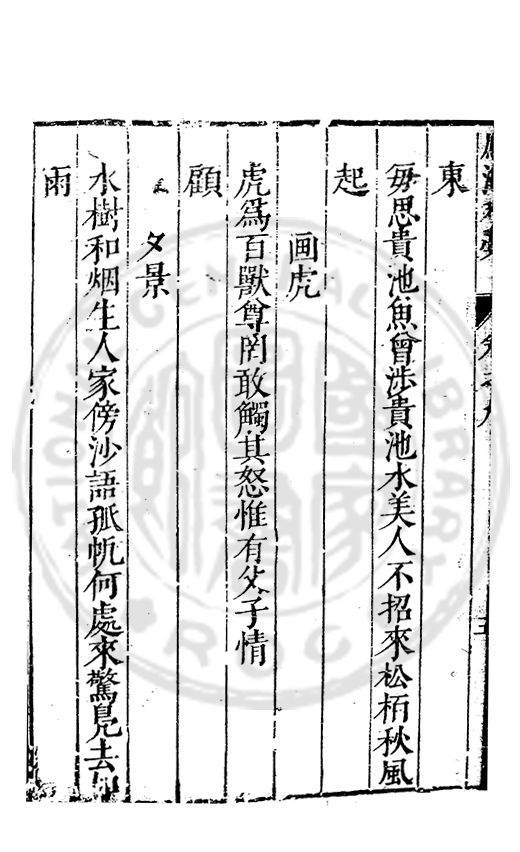 東
毎思貴池魚曾涉貴池水美人不招來松栢秋風
起
画虎
虎爲百獸尊罔敢觸其怒惟有父子情
顧
夕景
水樹和烟生人家傍沙語孤帆何處來驚鳬去如
雨